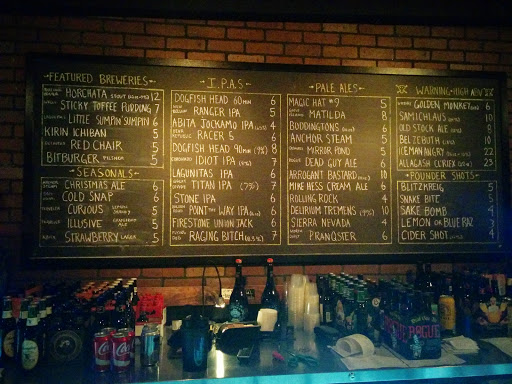 FEATURED BREWERIES
HORCHATA STOUT 12
STICKY TOFFEE PUDDING 7
LITTLE SUMPIN' SUMPIN 6
KIRIN ICHIBAN 5
RED CHAIR 5
BITBURGER PILSNER 5
SEASONALS
CHRISTMAS ALE 6
COLD SNAP 6
CURIOUS 5
ILLUSIVE 5
STRAWBERRY LAGER 5
I.P.A.S
DOGFISH HEAD 60 MIN 6
RANGER IPA 5
ABITA JOCKAMO IPA 4
RACER 5 6
DOGFISH HEAD 90 MIN (9%) 8
IDIOT IPA 7
LAGUNITAS 6
TITAN IPA (7%) 7
STONE IPA 6
POINT WAY IPA 6
FIRESTONE UNION JACK 6
RAGING BITCH (8.3%) 7
PALE ALES
MAGIC HAT #9 5
MATILDA 8
BODDINGTONS 6
ANCHOR STEAM 5
MIRROR POND 5
DEAD GUY ALE 6
ARROGANT BASTARD 10
MIKE HESS CREAM ALE 6
ROLLING ROCK 4
DELIRIUM TREMENS (9%) 10
SIERRA NEVADA 4
PRANQSTER 6
WARNING-HIGH ABV
GOLDEN MONKEY 6
SAMICHLAUS 10
OLD STOCK ALE 8
BELZEBOTH 10
ICEMAN INGERY 22
ALLAGASH CURIEUX 23
POUNDER SHOTS
BLITZKREIG 5
SNAKE BITE 5
SAKE BOMB 4
LEMON OR BLUE RAZ 3
CIDER SHOT 4
ROGUE